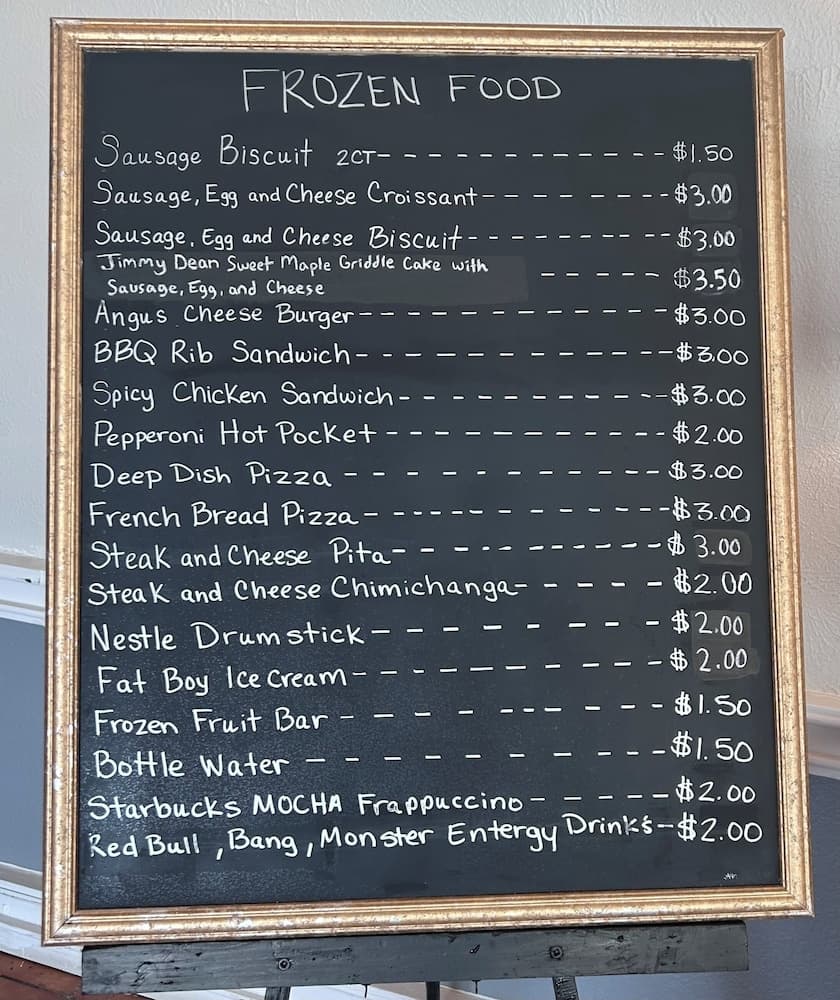 FROZEN FOOD
Sausage Biscuit 2CT - - - - - - - - - - - - $1.50
Sausage, Egg and Cheese Croissant - - - - - - - - $3.00
Sausage, Egg and Cheese Biscuit - - - - - - - - - $3.00
Jimmy Dean Sweet Maple Griddle Cake with
Sausage, Egg, and Cheese - - - - - $3.50
Angus Cheese Burger - - - - - - - - - - - - - $3.00
BBQ Rib Sandwich - - - - - - - - - - - - - $3.00
Spicy Chicken Sandwich - - - - - - - - - - - $3.00
Pepperoni Hot Pocket - - - - - - - - - - - - $2.00
Deep Dish Pizza - - - - - - - - - - - $3.00
French Bread Pizza - - - - - - - - - - - - $3.00
Steak and Cheese Pita - - - - - - - - - - - - $3.00
Steak and Cheese Chimichanga - - - - - $2.00
Nestle Drumstick - - - - - - - - $2.00
Fat Boy Ice Cream - - - - - - - - - - $2.00
Frozen Fruit Bar - - - - - - - - - - $1.50
Bottle Water - - - - - - - - - - $1.50
Starbucks MOCHA Frappuccino - - - - - $2.00
Red Bull, Bang, Monster Entergy Drinks - $2.00